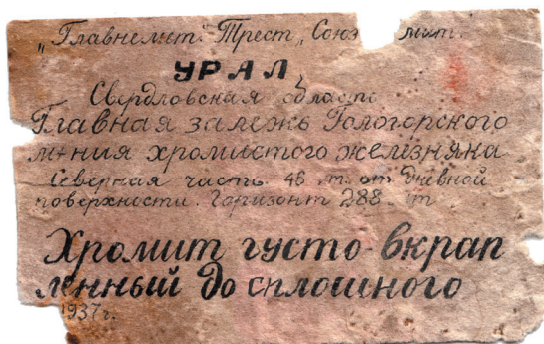 „Главнемит" Трест „Союз мит.
УРАЛ,
Свердловская область
Главная залежь Гологорского
м ния хромистого железняка
Северная часть. 46 м. от дневной
поверхности. Горизонт 288 м
Хромит густо-вкрап
ленный до сплошного
1937г.